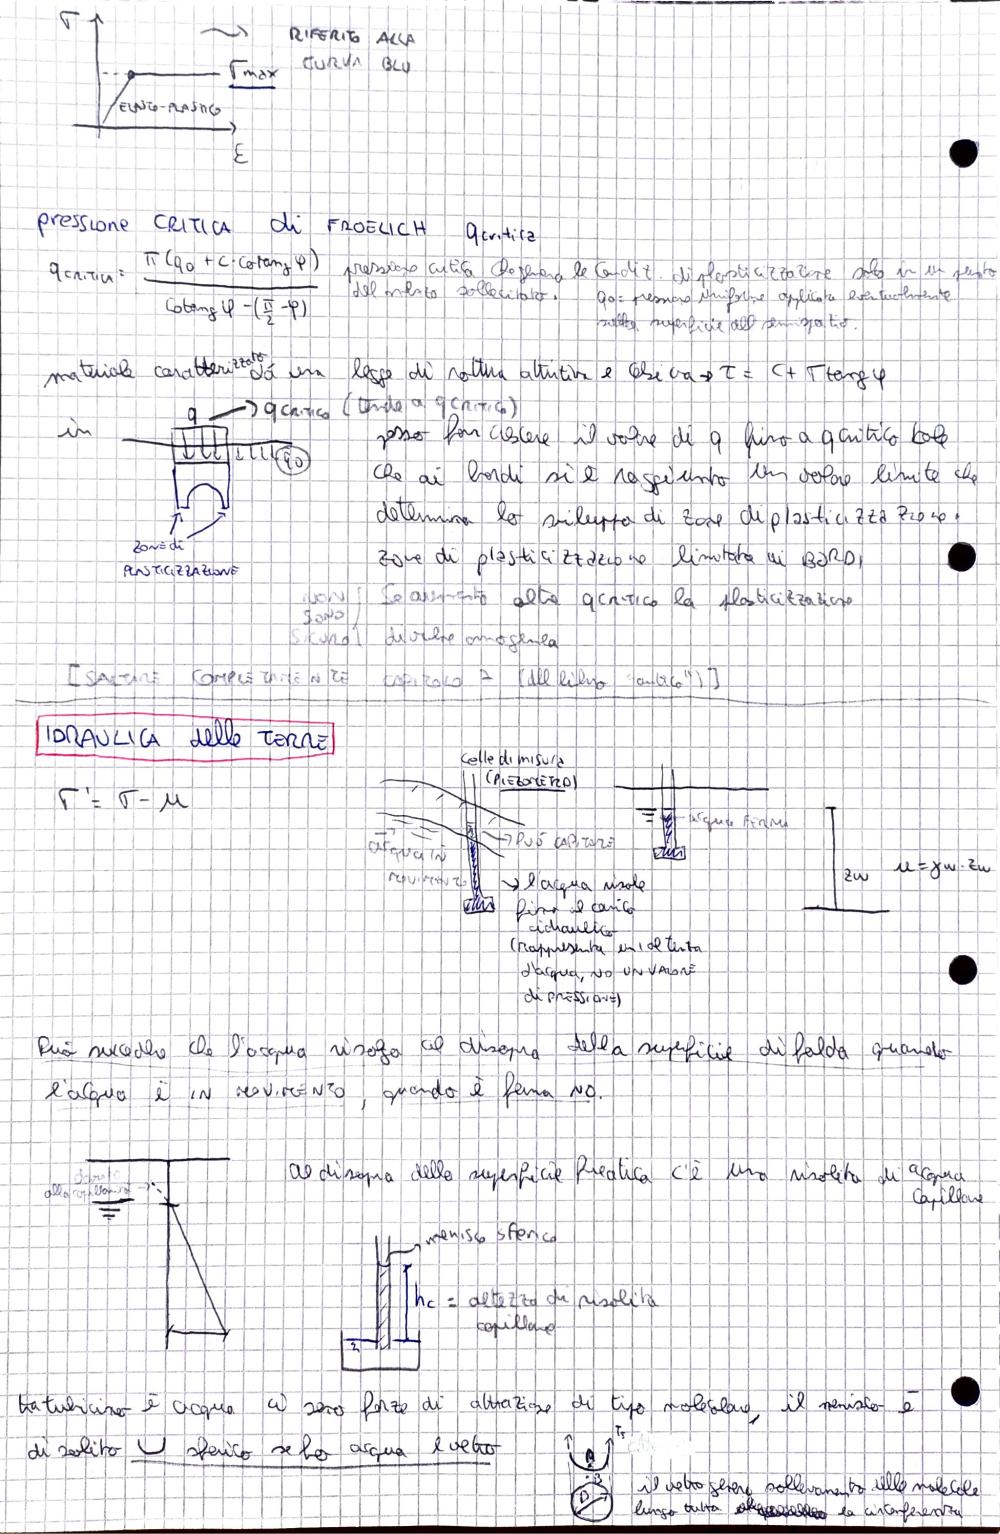 σ
RIFERITO ALLA
CURVA BLU
σmax
ELASTO-PLASTICO
ε
pressione CRITICA di FROELICH qcritica
qCRITICA = π(q0 + c·cotangφ) / cotangφ - (π/2 - φ)
pressione critica che genera le condiz. di plasticizzazione solo in un punto
del mezzo sollecitato. q0 = pressione uniforme applicata eventualmente
sulla superficie del semispazio.
materiale caratterizzato da una legge di rottura attritiva e coesiva → τ = c + σ tang φ
q → qCRITICO (tende a qCRITICO)
in
q0
ZONE di
PLASTICIZZAZIONE
posso far crescere il valore di q fino a qcritico tale
che ai bordi si è raggiunto un valore limite che
determina lo sviluppo di zone di plasticizzazione.
zone di plasticizzazione limitate ai BORDI
NON
SONO
SICURO
Se aumento oltre qCRITICO la plasticizzazione
diventa omogenea
[SALTARE COMPLETAMENTE CAPITOLO 7 (del libro "antico")]
IDRAULICA delle TERRE
σ' = σ - u
Celle di misura
(PIEZOMETRO)
acqua IN
MOVIMENTO
→ PUÒ CAPITARE
→ l'acqua risale
fino al carico
idraulico
(rappresenta un'altezza
d'acqua, NO UN VALORE
di PRESSIONE)
acqua FERMA
zw
u = γw · zw
Può succedere che l'acqua risalga al disopra della superficie di falda quando
l'acqua è IN MOVIMENTO, quando è ferma NO.
dovuto
alla capillarità
al disopra della superficie freatica c'è una risalita di acqua
capillare
menisco sferico
hc = altezza di risalita
capillare
tra tubicino e acqua ci sono forze di attrazione di tipo molecolare, il menisco è
di solito ∪ sferico se ho acqua e vetro
Ts
A
B
D
il vetro genera sollevamento delle molecole
lungo tutta la circonferenza